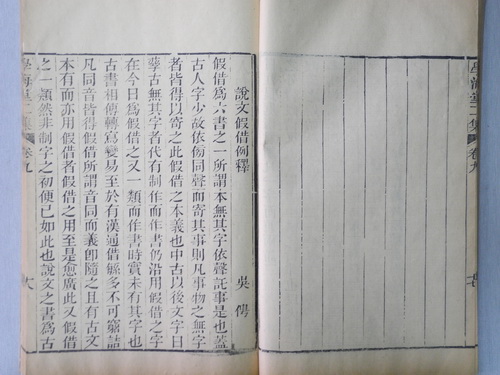 學海堂二集
卷九
說文假借例釋
吳
假借爲六書之一所謂本無其字依聲託事是也蓋
古人字少故依傍同聲而寄其事則凡事物之無字
者皆得以寄之此假借之本義也中古以後文字日
孳古無其字者代有制作而作書仍沿用假借之字
在今日爲假借之又一類而作書時實未有其字也
古書相傳轉爲變易至於有漢通借緐多不可窮詰
凡同音皆得假借所謂音同而義卽隨之且有古文
本有而亦用假借者假借之用至是愈廣此又假借
之一類然非制字之初便已如此也說文之書爲古
學海堂二集
卷九